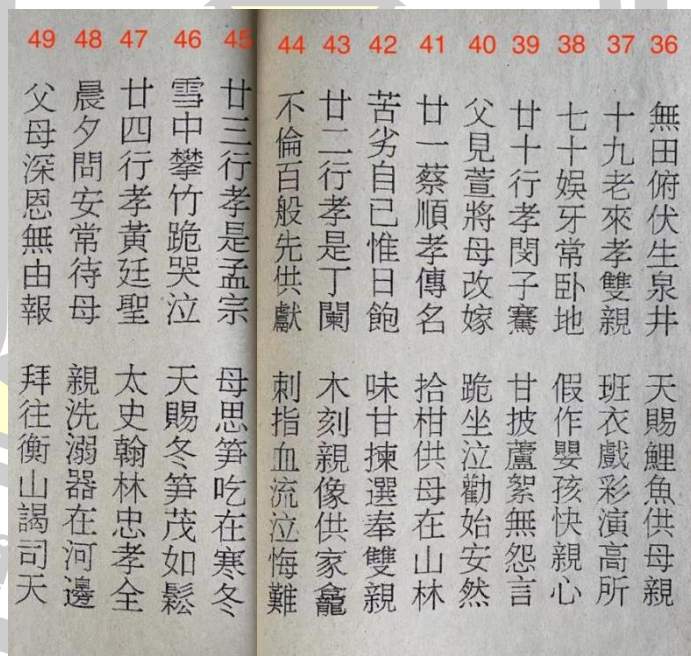 36
無田俯伏生泉井 天賜鯉魚供母親
37
十九老來孝雙親 班衣戲彩演高所
38
七十娛牙常卧地 假作嬰孩快親心
39
廿十行孝閔子騫 甘披蘆絮無怨言
40
父見萱將母改嫁 跪坐泣勸始安然
41
廿一蔡順孝傳名 拾柑供母在山林
42
苦劣自已惟日飽 味甘揀選奉雙親
43
廿二行孝是丁闌 木刻親像供家龕
44
不倫百般先供獻 刺指血流泣悔難
45
廿三行孝是孟宗 母思笋吃在寒冬
46
雪中攀竹跪哭泣 天賜冬笋茂如鬆
47
廿四行孝黃廷聖 太史翰林忠孝全
48
晨夕問安常待母 親洗溺器在河邊
49
父母深恩無由報 拜往衡山謁司天